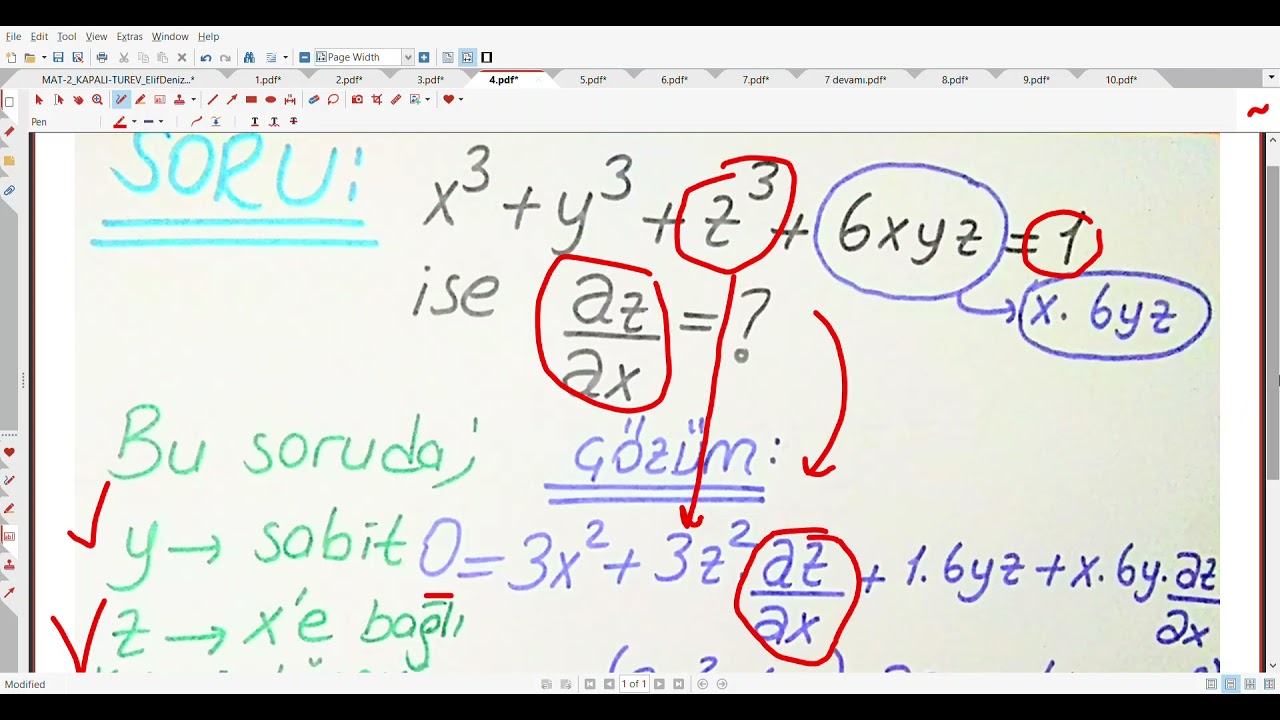 File Edit Tool View Extras Window Help
Page Width
MAT-2_KAPALI-TUREV_ElifDeniz...* 1.pdf* 2.pdf* 3.pdf* 4.pdf* 5.pdf* 6.pdf* 7.pdf* 7 devamı.pdf* 8.pdf* 9.pdf* 10.pdf*
Pen
SORU: x³ + y³ + z³ + 6xyz = 1
x. 6yz
ise ∂z/∂x = ?
Bu soruda;
çözüm:
y → sabit
0 = 3x² + 3z².∂z/∂x + 1.6yz + x.6y.∂z/∂x
z → x'e bağlı
Modified
1 of 1